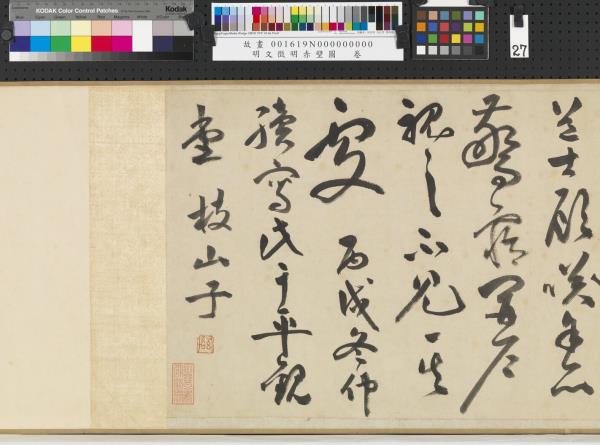 KODAK Color Control Patches
Kodak
故畫 001619N000000000
明文徵明赤壁圖 卷
27
道士顧笑余亦
驚寤開戶
視之不見其
處 丙戌冬仲
續寫此于平觀
堂 枝山子